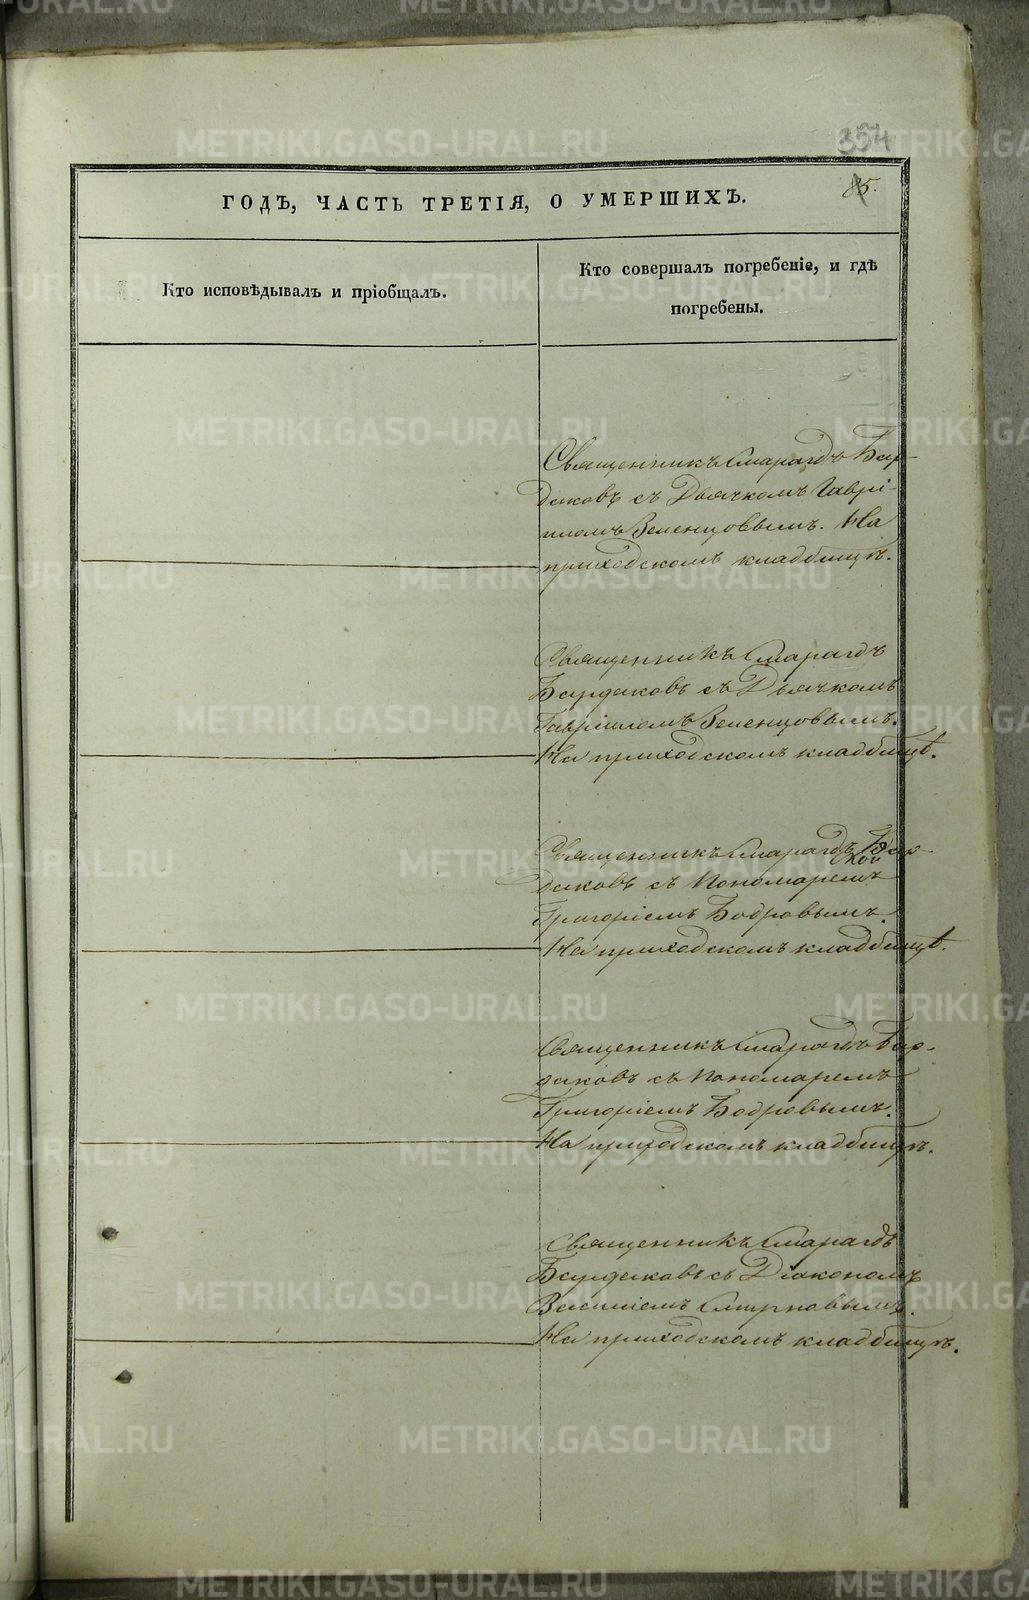 354
85.
ГОДЪ, ЧАСТЬ ТРЕТІЯ, О УМЕРШИХЪ.
Кто исповѣдывалъ и пріобщалъ.
Кто совершалъ погребеніе, и гдѣ
погребены.
Священникъ Смарагдъ Бур-
даковъ съ Дьячкомъ Гаврі-
иломъ Зеленцовымъ. На
приходскомъ кладбищѣ.
Священникъ Смарагдъ
Бурдаковъ съ Дьячкомъ
Гавріиломъ Зеленцовымъ.
На приходскомъ кладбищѣ.
Священникъ Смарагдъ Бур-
даковъ съ Пономаремъ
Григоріемъ Бобровымъ.
На приходскомъ кладбищѣ.
Священникъ Смарагдъ Бур-
даковъ съ Пономаремъ
Григоріемъ Бобровымъ.
На приходскомъ кладбищѣ.
Священникъ Смарагдъ
Бурдаковъ съ Діакономъ
Василіемъ Смирновымъ.
На приходскомъ кладбищѣ.
METRIKI.GASO-URAL.RU